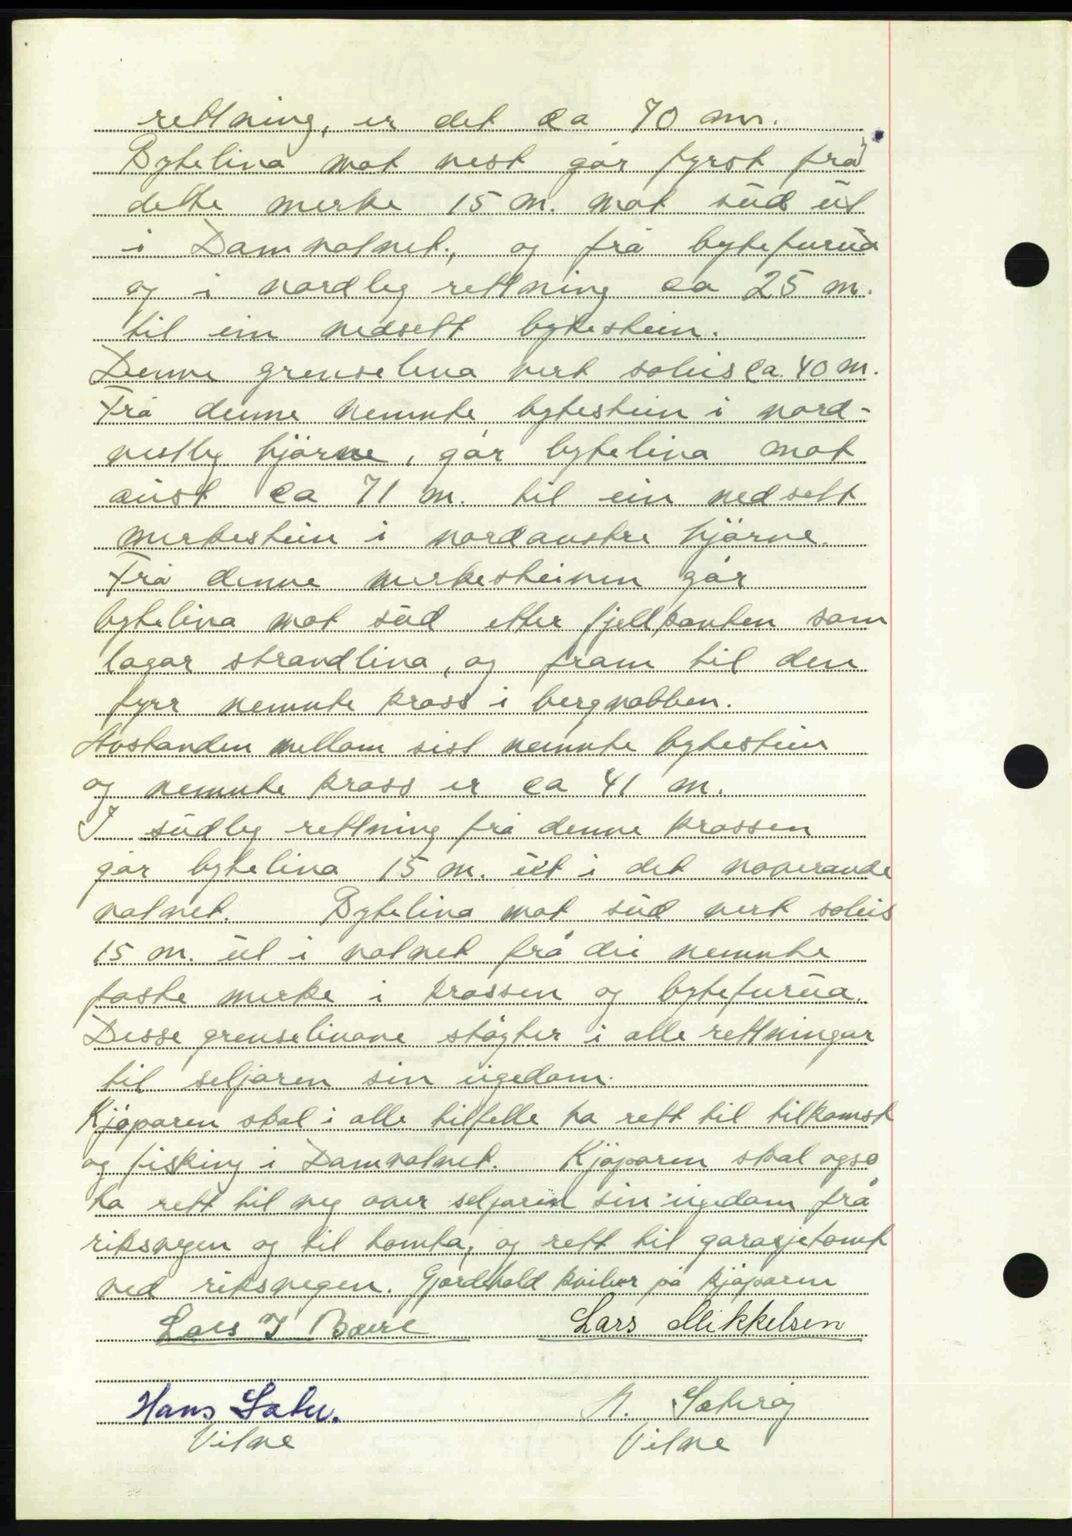 rettning, er det ca 70 m.
Bytelina mot vest går fyrst frå
dette merke 15 m. mot süd üt
i Damvatnet, og frå bytefurüa
og i nordleg rettning ca 25 m.
til ein nedsett bytestein.
Denne grenselina vert soleis ca 40 m.
Frå denne nemnte bytestein i nord-
vestleg hjörne, går bytelina mot
aust ca 71 m. til ein nedsett
merkestein i nordaustre hjörne.
Frå denne merkesteinen går
bytelina mot süd etter fjellkanten som
lagar strandlina, og fram til den
fyrr nemnte kross i bergnabben.
Avstanden mellom sist nemnte bytestein
og nemnte kross er ca 41 m.
I südleg rettning frå denne krossen
går bytelina 15 m. üt i det noverande
vatnet. Bytelina mot süd vert soleis
15 m. üt i vatnet frå dei nemnte
faste merke i krossen og bytefurüa.
Desse grenselinone støyter i alle rettningar
til seljaren sin eigedom.
Kjöparen skal i alle tilfelle ha rett til tilkomst
og fisking i Damvatnet. Kjöparen skal ogso
ha rett til veg over seljaren sin eigedom frå
riksvegen og til tomta, og rett til garasjetomt
ved riksvegen. Gjerdehald kviler på kjöparen
Lars I Boere
Lars Mikkelsen
Hans
Vitne
Vitne